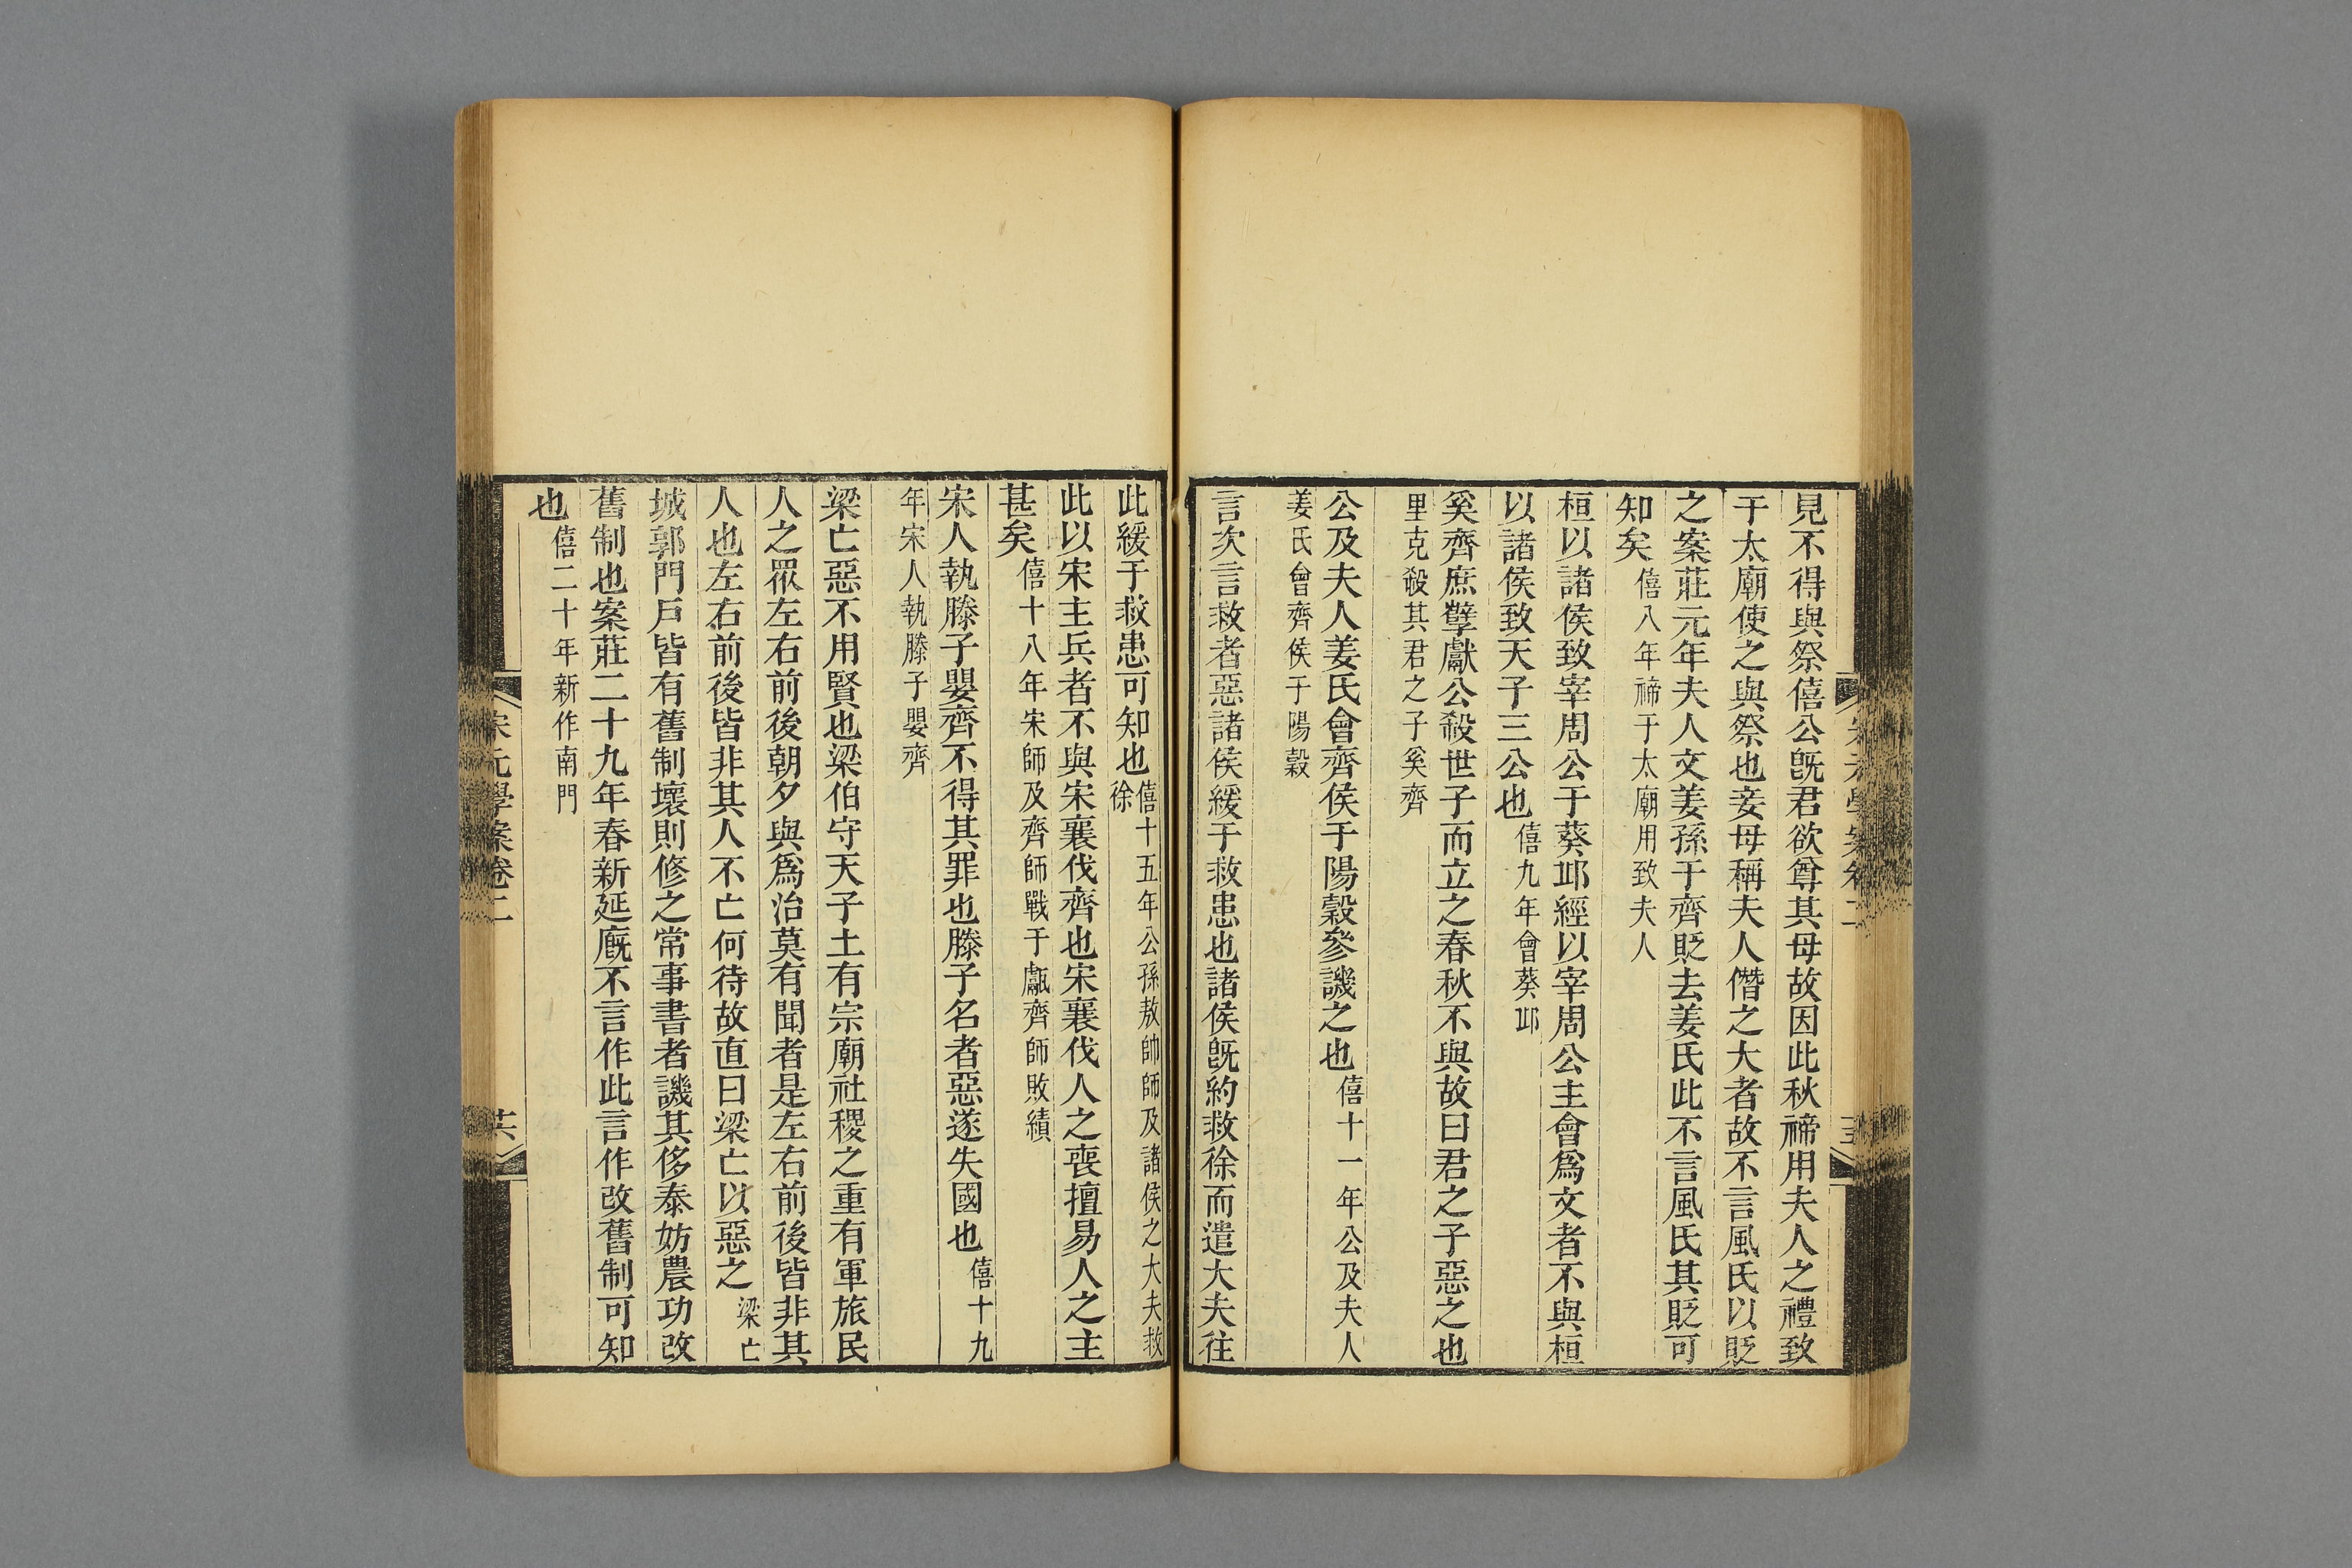 見不得與祭僖公旣君欲尊其母故因此秋禘用夫人之禮致
于太廟使之與祭也妾母稱夫人僭之大者故不言風氏以貶
之案莊元年夫人文姜孫于齊貶去姜氏此不言風氏其貶可
知矣僖八年禘于太廟用致夫人
桓以諸侯致宰周公于葵邱經以宰周公主會爲文者不與桓
以諸侯致天子三公也僖九年會葵邱
奚齊庶孽獻公殺世子而立之春秋不與故曰君之子惡之也
里克殺其君之子奚齊
公及夫人姜氏會齊侯于陽穀參譏之也僖十一年公及夫人
姜氏會齊侯于陽穀
言次言救者惡諸侯緩于救患也諸侯旣約救徐而遣大夫往
此緩于救患可知也僖十五年公孫敖帥師及諸侯之大夫救
徐
此以宋主兵者不與宋襄伐齊也宋襄伐人之喪擅易人之主
甚矣僖十八年宋師及齊師戰于甗齊師敗績
宋人執滕子嬰齊不得其罪也滕子名者惡遂失國也僖十九
年宋人執滕子嬰齊
梁亡惡不用賢也梁伯守天子土有宗廟社稷之重有軍旅民
人之眾左右前後朝夕與爲治莫有聞者是左右前後皆非其
人也左右前後皆非其人不亡何待故直曰梁亡以惡之梁亡
城郭門戶皆有舊制壞則修之常事書者譏其侈泰妨農功改
舊制也案莊二十九年春新延廄不言作此言作改舊制可知
也僖二十年新作南門
宋元學案卷二